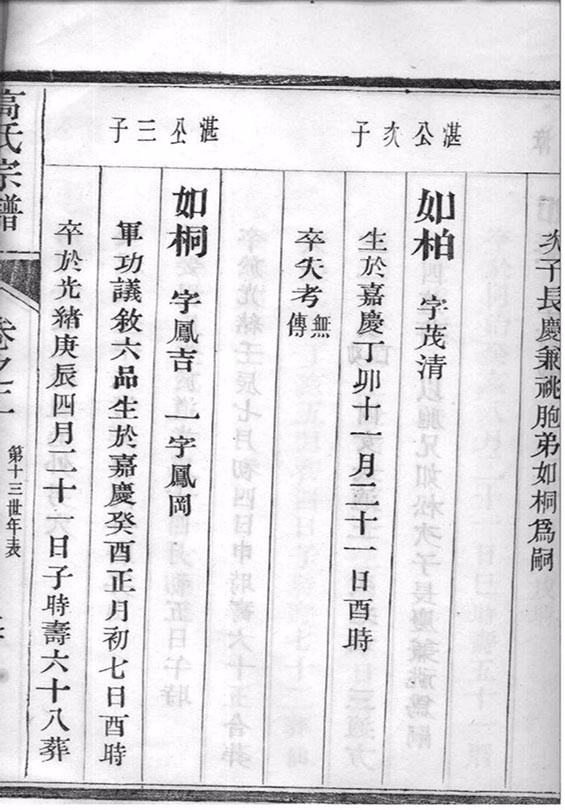 次子長慶兼祧胞弟如桐爲嗣
湛公次子
如柏 字茂清
生於嘉慶丁卯十一月二十一日酉時
卒失考 無傳
湛公三子
如桐 字鳳吉 一字鳳岡
軍功議敘六品生於嘉慶癸酉正月初七日酉時
卒於光緒庚辰四月二十一日子時壽六十八葬
高氏宗譜
卷之
第十三世年表